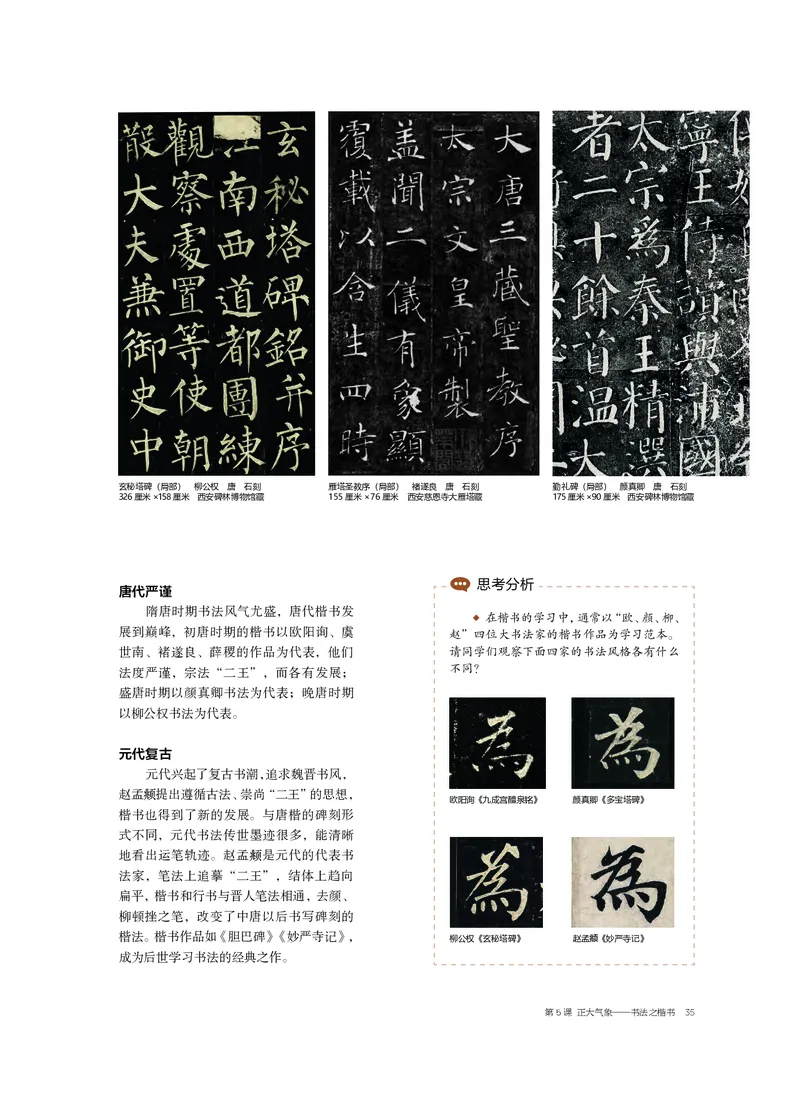 玄秘塔碑銘并序
南西道都團練
觀察處置等使朝
散大夫兼御史中
大唐三藏聖教序
太宗文皇帝製
盖聞二儀有象顯
覆載以含生四時
寧王侍讀與浦國
太宗爲秦王精選
者二十餘首溫大
玄秘塔碑（局部） 柳公权 唐 石刻
326 厘米 ×158 厘米 西安碑林博物馆藏
雁塔圣教序（局部） 褚遂良 唐 石刻
155 厘米 ×76 厘米 西安慈恩寺大雁塔藏
勤礼碑（局部） 颜真卿 唐 石刻
175 厘米 ×90 厘米 西安碑林博物馆藏
唐代严谨
隋唐时期书法风气尤盛，唐代楷书发
展到巅峰，初唐时期的楷书以欧阳询、虞
世南、褚遂良、薛稷的作品为代表，他们
法度严谨，宗法“二王”，而各有发展；
盛唐时期以颜真卿书法为代表；晚唐时期
以柳公权书法为代表。
元代复古
元代兴起了复古书潮，追求魏晋书风，
赵孟𫖯提出遵循古法、崇尚“二王”的思想，
楷书也得到了新的发展。与唐楷的碑刻形
式不同，元代书法传世墨迹很多，能清晰
地看出运笔轨迹。赵孟𫖯是元代的代表书
法家，笔法上追摹“二王”，结体上趋向
扁平，楷书和行书与晋人笔法相通，去颜、
柳顿挫之笔，改变了中唐以后书写碑刻的
楷法。楷书作品如《胆巴碑》《妙严寺记》，
成为后世学习书法的经典之作。
思考分析
◆ 在楷书的学习中，通常以“欧、颜、柳、
赵”四位大书法家的楷书作品为学习范本。
请同学们观察下面四家的书法风格各有什么
不同？
為
為
欧阳询《九成宫醴泉铭》
颜真卿《多宝塔碑》
為
為
柳公权《玄秘塔碑》
赵孟𫖯《妙严寺记》
第 5 课 正大气象——书法之楷书 35